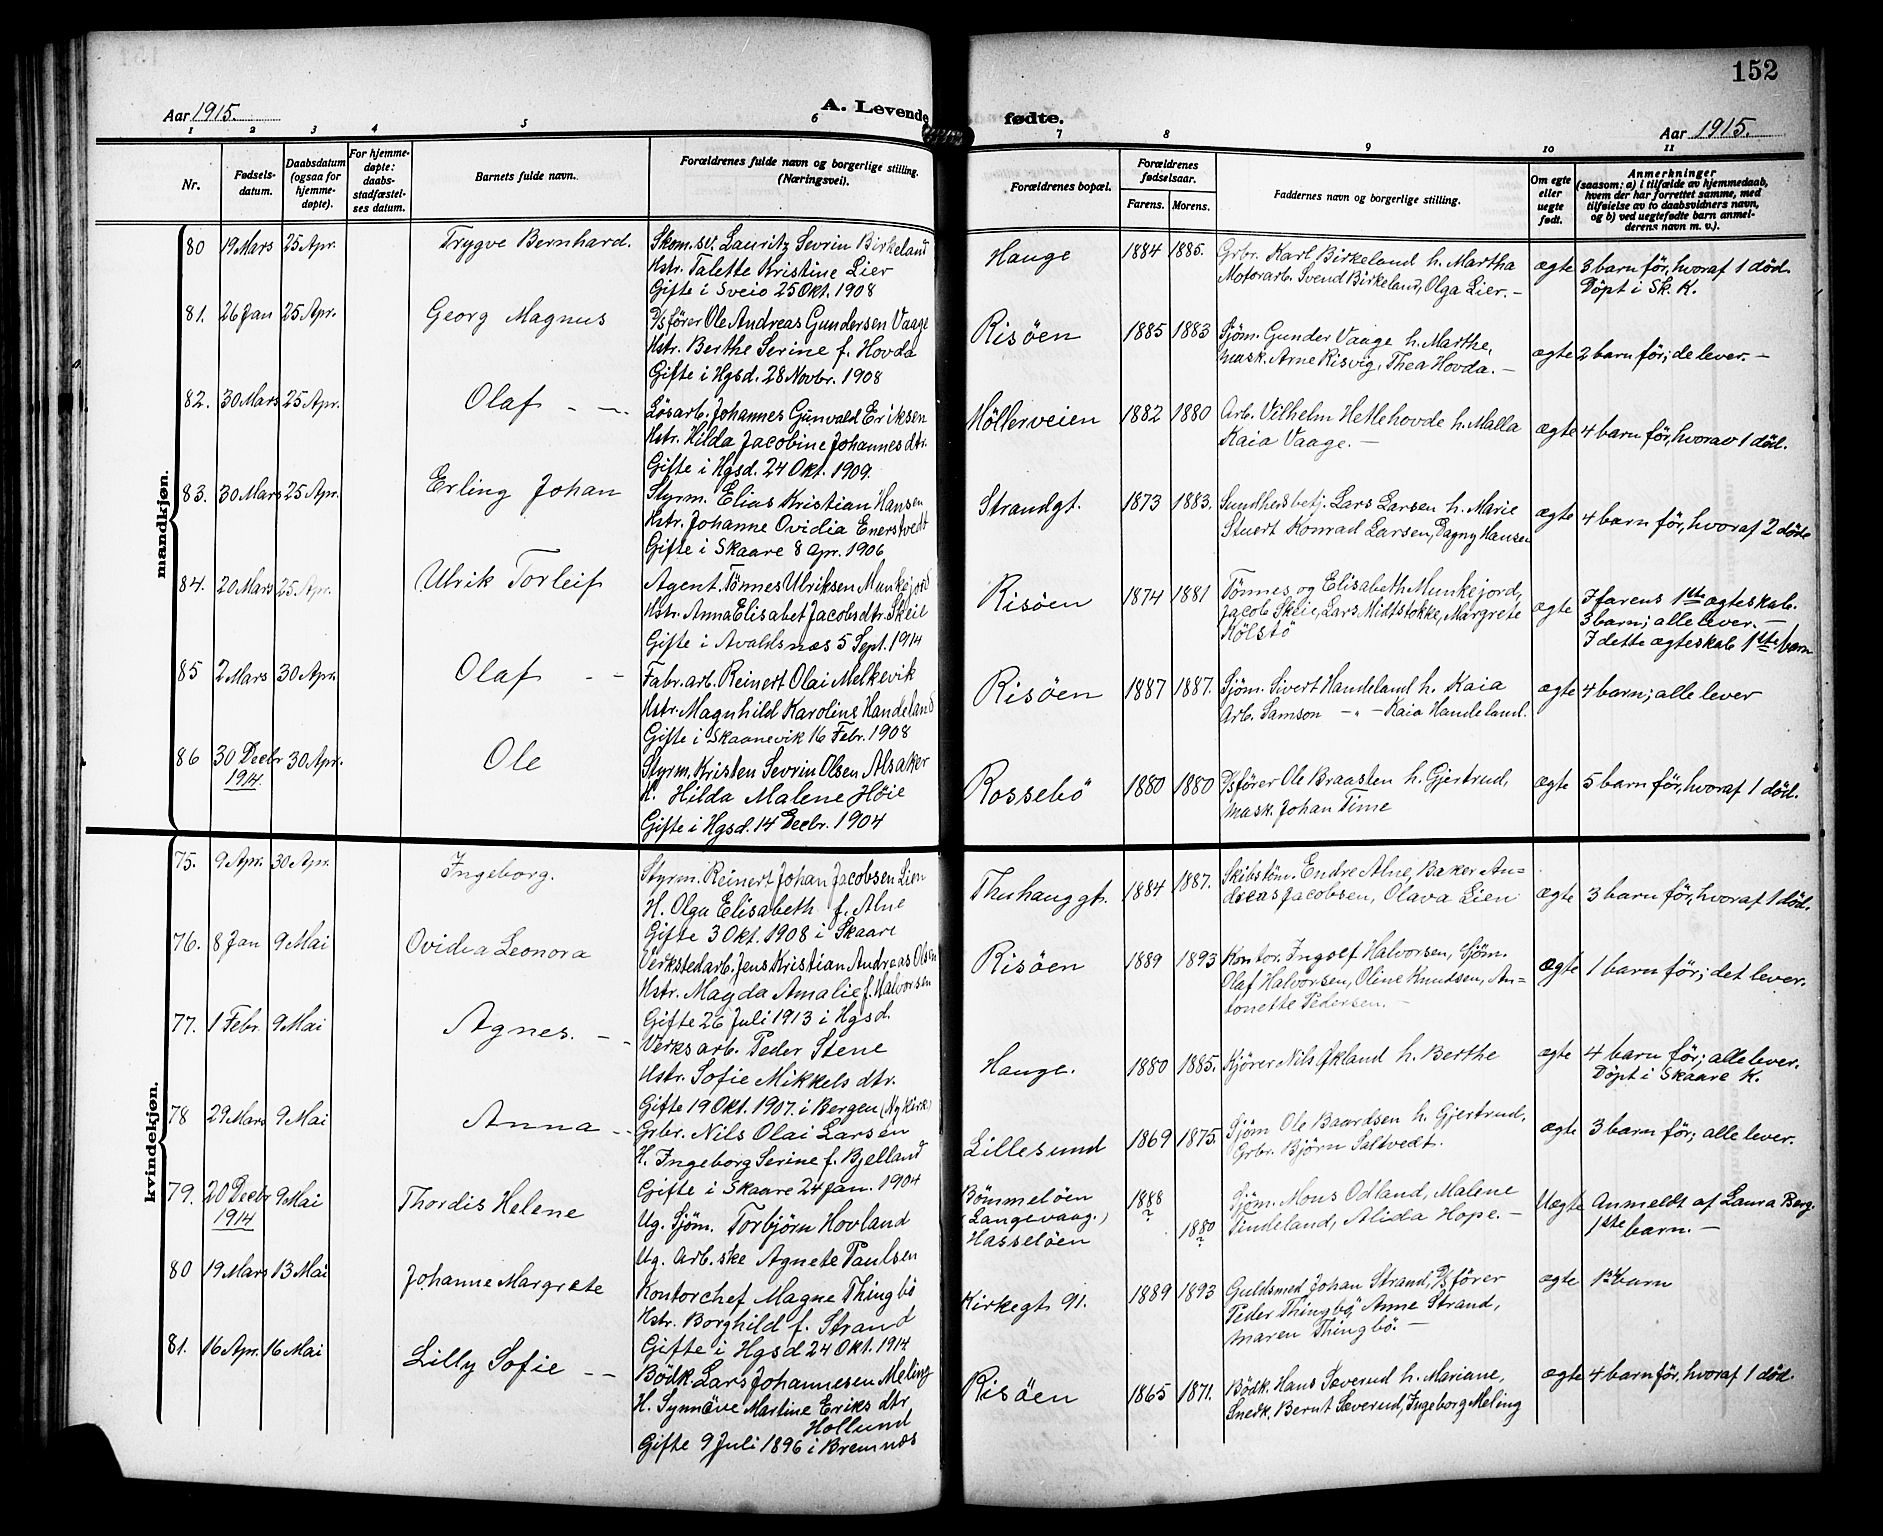 152
Aar 1915.
A. Levende fødte.
Aar 1915.
1 2 3 4 5 6 7 8 9 10 11
Nr.
Fødsels-
datum.
Daabsdatum
(ogsaa for
hjemme-
døpte).
For hjemme-
døpte:
daabs-
stadfæstel-
ses datum.
Barnets fulde navn.
Forældrenes fulde navn og borgerlige stilling.
(Næringsvei).
Forældrenes bopæl.
Forældrenes
fødselsaar.
Farens. Morens.
Faddernes navn og borgerlige stilling.
Om egte
eller
uegte
født.
Anmerkninger
(saasom: a) i tilfælde av hjemmedaab,
hvem der har forrettet samme, med
tilføielse av to daabsvidners navn,
og b) ved uegtefødte barn anmel-
derens navn m. v.).
mandkjøn.
80 19 Mars 25 Apr. Trygve Bernhard.
Skom.sv. Lauritz Sevrin Birkeland
Hstr. Talette Kristine Lier
Gifte i Sveio 25 Okt. 1908
Hauge 1884 1885.
Grbr. Karl Birkeland h. Martha
Motorarb. Svend Birkeland, Olga Lier. -
ægte 3 barn før, hvoraf 1 död.
Döpt i Sk. K.
81. 26 Jan 25 Apr. Georg Magnus
D/s fører Ole Andreas Gundersen Vaage
Hstr. Berthe Serine f. Hovda
Gifte i Hgsd. 28 Novbr. 1908
Risöen 1885 1883
Sjöm. Gunder Vaage h. Marthe,
mask. Arne Risvig, Thea Hovda. -
ægte 2 barn för; de lever. -
82. 30 Mars 25 Apr. Olaf - -
Løsarb. Johannes Gunvald Eriksen
Hstr. Hilda Jacobine Johannesdtr.
Gifte i Hgsd. 24 Okt. 1909.
Möllerveien 1882 1880
Arb. Vilhelm Hetlehovde h. Malla
Kaia Vaage. -
ægte 4 barn før, hvorav 1 död.
83. 30 Mars 25 Apr. Erling Johan
Styrm. Elias Kristian Hansen
Hstr. Johanne Ovidia Enerstvedt
Gifte i Skaare 8 Apr. 1906
Strandgt. 1873 1883.
Sundhedsbetj. Lars Larsen h. Marie
Stuert Konrad Larsen, Dagny Hansen
ægte 4 barn för, hvoraf 2 döde
84. 20 Mars 25 Apr. Ulrik Torleif
Agent Tönnes Ulriksen Munkejord
Hstr. Anna Elisabet Jacobsdtr. Skeie
Gifte i Avaldsnæs 5 Sept. 1914
Risöen 1874 1881
Tönnes og Elisabeth Munkejord,
Jacob Skeie, Lars Midtstokke, Margrete
Kölstö
ægte I farens 1ste ægteskab.
3 barn; alle lever. -
I dette ægteskab 1ste barn
85 2 Mars 30 Apr. Olaf - -
Fabr. arb. Reinert Olai Melkevik
Hstr. Magnhild Karoline Handeland
Gifte i Skaanevik 16 Febr. 1908
Risöen 1887 1887.
Sjöm. Sivert Handeland h. Kaia
Arb. Samson - " - Kaia Handeland.
ægte 4 barn; alle lever
86 30 Decbr 30 Apr. Ole
1914.
Styrm. Kristen Sevrin Olsen Alsaker
H. Hilda Malene Høie
Gifte i Hgsd. 14 Decbr. 1904
Rossebö 1880 1880
D/s fører Ole Braasten h. Gjertrud,
mask. Johan Time
ægte 5 barn för, hvoraf 1 död.
kvindekjøn.
75. 9 Apr. 30 Apr. Ingeborg.
Styrm. Reinert Johan Jacobsen Lien
H. Olga Elisabeth f. Alne
Gifte 3 Okt. 1908 i Skaare
Thuhauggt. 1884 1887.
Skibstöm. Endre Alne, Baker An-
dreas Jacobsen, Olava Lien
ægte 3 barn för, hvoraf 1 död.
76. 8 Jan 9 Mai Ovidia Leonora
Verkstedarb. Jens Kristian Andreas Olsen
Hstr. Magda Amalie f. Halvorsen
Gifte 26 Juli 1913 i Hgsd.
Risöen 1889 1893
Kontor. Ingolf Halvorsen, Sjöm.
Olaf Halvorsen, Oline Knudsen, An-
tonette Pedersen. -
ægte 1 barn för; det lever.
77. 1 Febr. 9 Mai Agnes. - -
Verksarb. Peder Stene
Hstr. Sofie Mikkelsdtr.
Gifte 19 Okt. 1907. i Bergen (Nykirk.)
Hauge. 1880 1885.
Kjörer Nils Økland h. Berthe
ægte 4 barn för; alle lever.
Döpt i Skaare K.
78 29 Mars 9 Mai Anna - -
Grbr. Nils Olai Larsen
H. Ingeborg Serine f. Bjelland
Gifte i Skaare 24 Jan. 1904
Lillesund 1869 1875.
Sjöm Ole Baardsen h. Gjertrud,
Grbr. Björn Saltvedt.
ægte 3 barn för; alle lever.
79. 20 Decbr 9 Mai Thordis Helene
1914
Ug. Sjöm. Torbjörn Hovland
Ug. Arb.ske Agnete Paulsen
Bömmelöen
(Langevaag.)
Hasselöen
1888
?
1880
?
Sjöm. Mons Odland, Malene
Tindeland, Alida Hope. -
Uægte Anmeldt af Laura Berg.
1ste barn. -
80 19 Mars 13 Mai Johanne Margrete
Kontorchef Magne Thingbö
Hstr. Borghild f. Strand
Gifte i Hgsd 24 Okt. 1914
Kirkegt. 91. 1889 1893
Guldsmed Johan Strand, D/s fører
Peder Thingbö, Anne Strand,
Maren Thingbö. -
ægte 1ste barn
81. 16 Apr. 16 Mai Lilly Sofie - -
Bödk. Lars Johannesen Meling
H. Synnöve Martine Eriksdtr
Hollund
Gifte 9 Juli 1896 i Bremnæs
Risöen 1865 1871.
Bödk. Hans Sæverud h. Mariane,
Snedk. Bernt Sæverud, Ingeborg Meling
ægte 4 barn før, hvoraf 1 död.